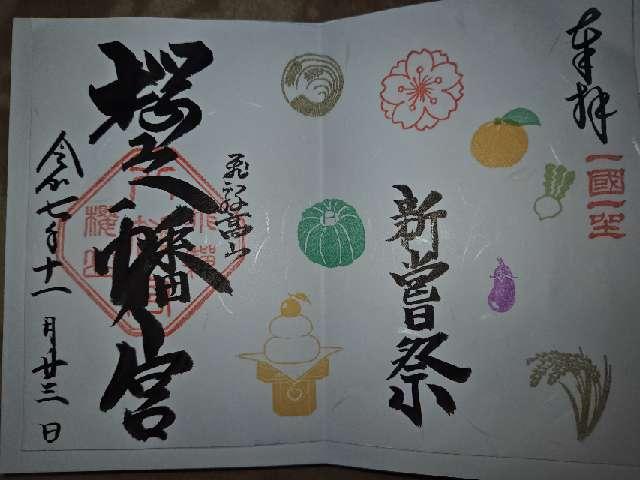 奉拝
一國一
新嘗祭
飛騨高山
桜山八幡宮
令和七年十一月廿三日